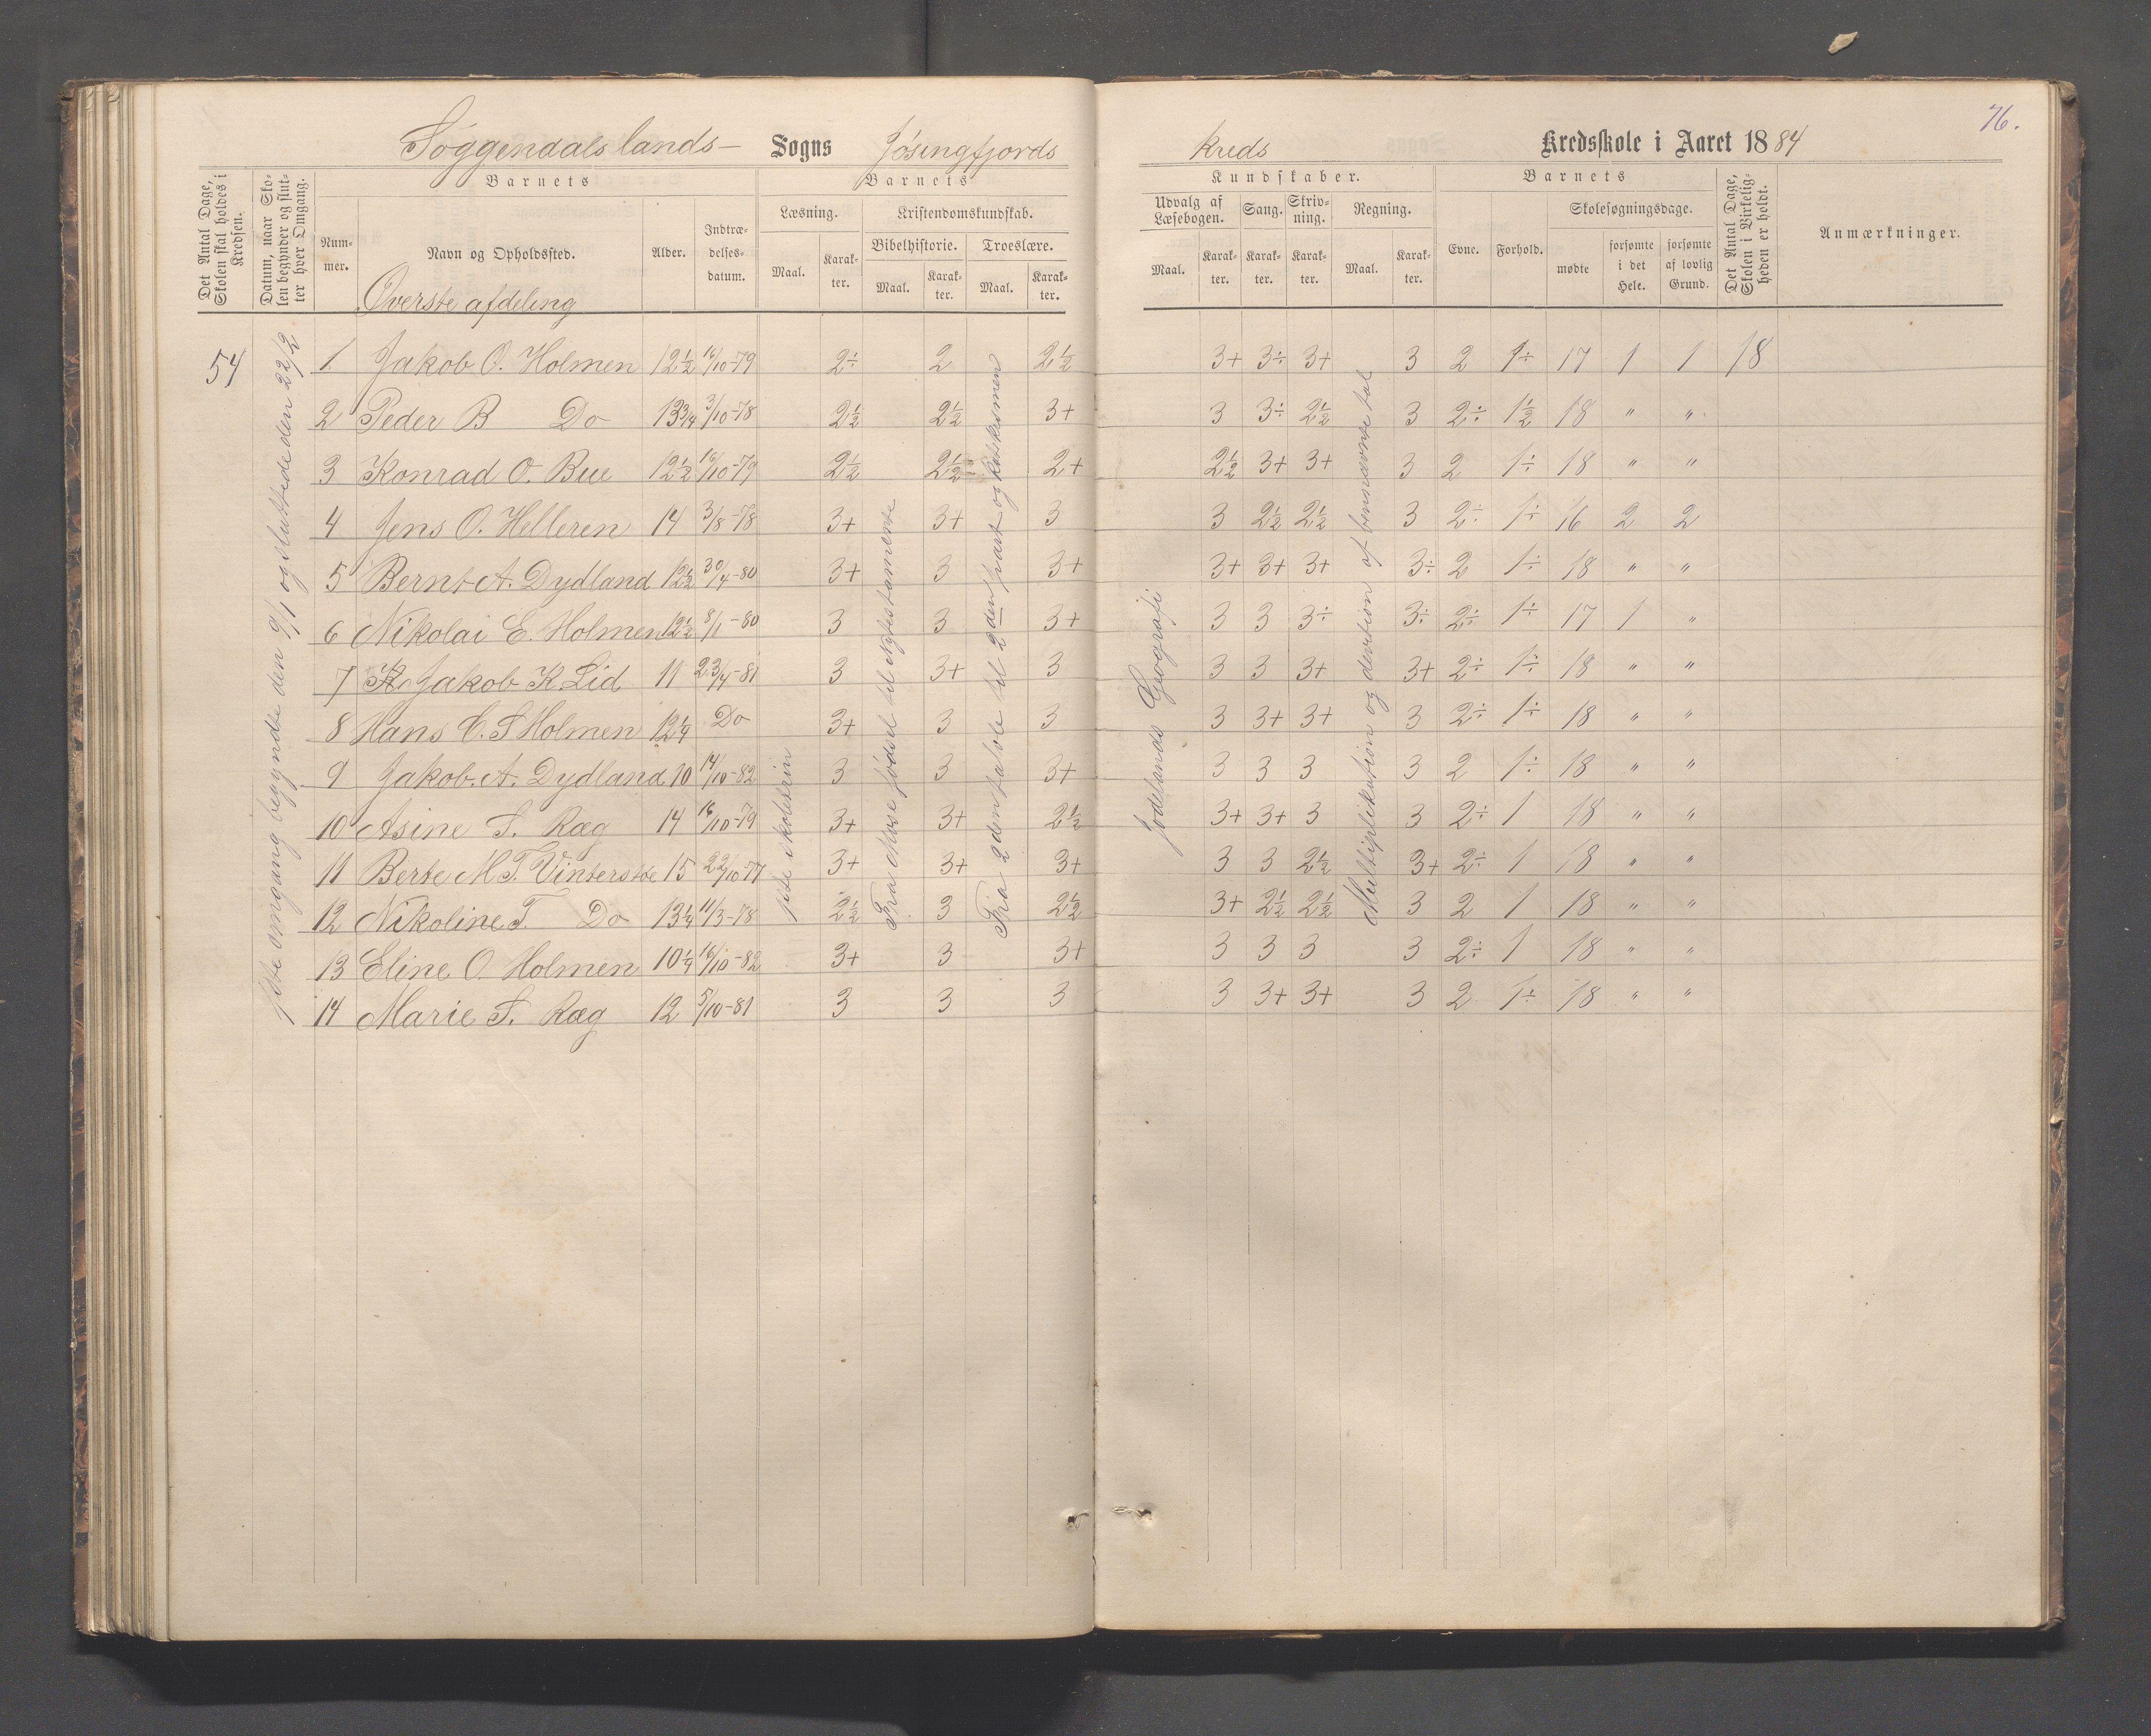 76.
Søggendals lands- Sogns Jøsingfjords kreds Kredsskole i Aaret 1884
Det Antal Dage, Skolen skal holdes i Kredsen.
Datum, naar Skolen begynder og slutter hver Omgang.
Barnets
Nummer.
Navn og Opholdssted.
Alder.
Indtrædelsesdatum.
Barnets
Læsning.
Maal.
Karakter.
Kristendomskundskab.
Bibelhistorie.
Maal.
Karakter.
Troeslære.
Maal.
Karakter.
Kundskaber.
Udvalg af Læsebogen.
Maal.
Karakter.
Sang.
Karakter.
Skrivning.
Karakter.
Regning.
Maal.
Karakter.
Barnets
Evne.
Forhold.
Skolesøgningsdage.
mødte
forsømte i det Hele.
forsømte af lovlig Grund.
Det Antal Dage, Skolen i Virkeligheden er holdt.
Anmærkninger.
Øverste afdeling
54
1ste omgang begyndte den 9/1 og sluttede den 22/2
1ste skoletrin
Fra Mose fødsel til Nytestamente
Fra 2den tavle til 2den part og katekismen
Jodelands Geografi
Multiplikation og devition af benævnte tal
1. Jakob O. Holmen 12½ 16/10-79 2÷ 2 2½ 3+ 3÷ 3+ 3 2 1÷ 17 1 1 18
2 Peder B Do 13¾ 3/10-78 2½ 2½ 3+ 3 3÷ 2½ 3 2÷ 1½ 18 " "
3 Konrad O. Bue 12½ 16/10-79 2½ 2½ 2+ 2½ 3+ 3+ 3 2 1÷ 18 " "
4 Jens O. Helleren 14 3/8-78 3+ 3+ 3 3 2½ 2½ 3 2÷ 1÷ 16 2 2
5 Bernt A. Dydland 12½ 30/4-80 3+ 3 3+ 3+ 3+ 3+ 3÷ 2 1÷ 18 " "
6 Nikolai E. Holmen 12½ 8/1-80 3 3 3+ 3 3 3÷ 3÷ 2÷ 1÷ 17 1 "
7 Jakob K Lid 11 23/4-81 3 3+ 3 3 3 3+ 3+ 2÷ 1÷ 18 " "
8 Hans C. S Holmen 12¼ Do 3+ 3 3 3 3+ 3+ 3 2÷ 1÷ 18 " "
9 Jakob. A. Dydland 10 14/10-82 3 3 3+ 3 3 3 3 2 1÷ 18 " "
10 Asine S. Ræg 14 16/10-79 3+ 3+ 2½ 3+ 3+ 3 3 2÷ 1 18 " "
11 Berte M T. Vinterstøe 15 22/10-77 3+ 3+ 3+ 3 3 2½ 3+ 2÷ 1 18 " "
12 Nikoline T. Do 13¼ 11/3-78 2½ 3 2½ 3+ 2½ 2½ 3 2 1 18 " "
13 Eline O. Holmen 10¼ 16/10-82 3+ 3 3+ 3 3 3 3 2÷ 1 18 " "
14 Marie S. Ræg 12 5/10-81 3 3 3 3 3+ 3+ 3 2 1÷ 18 " "